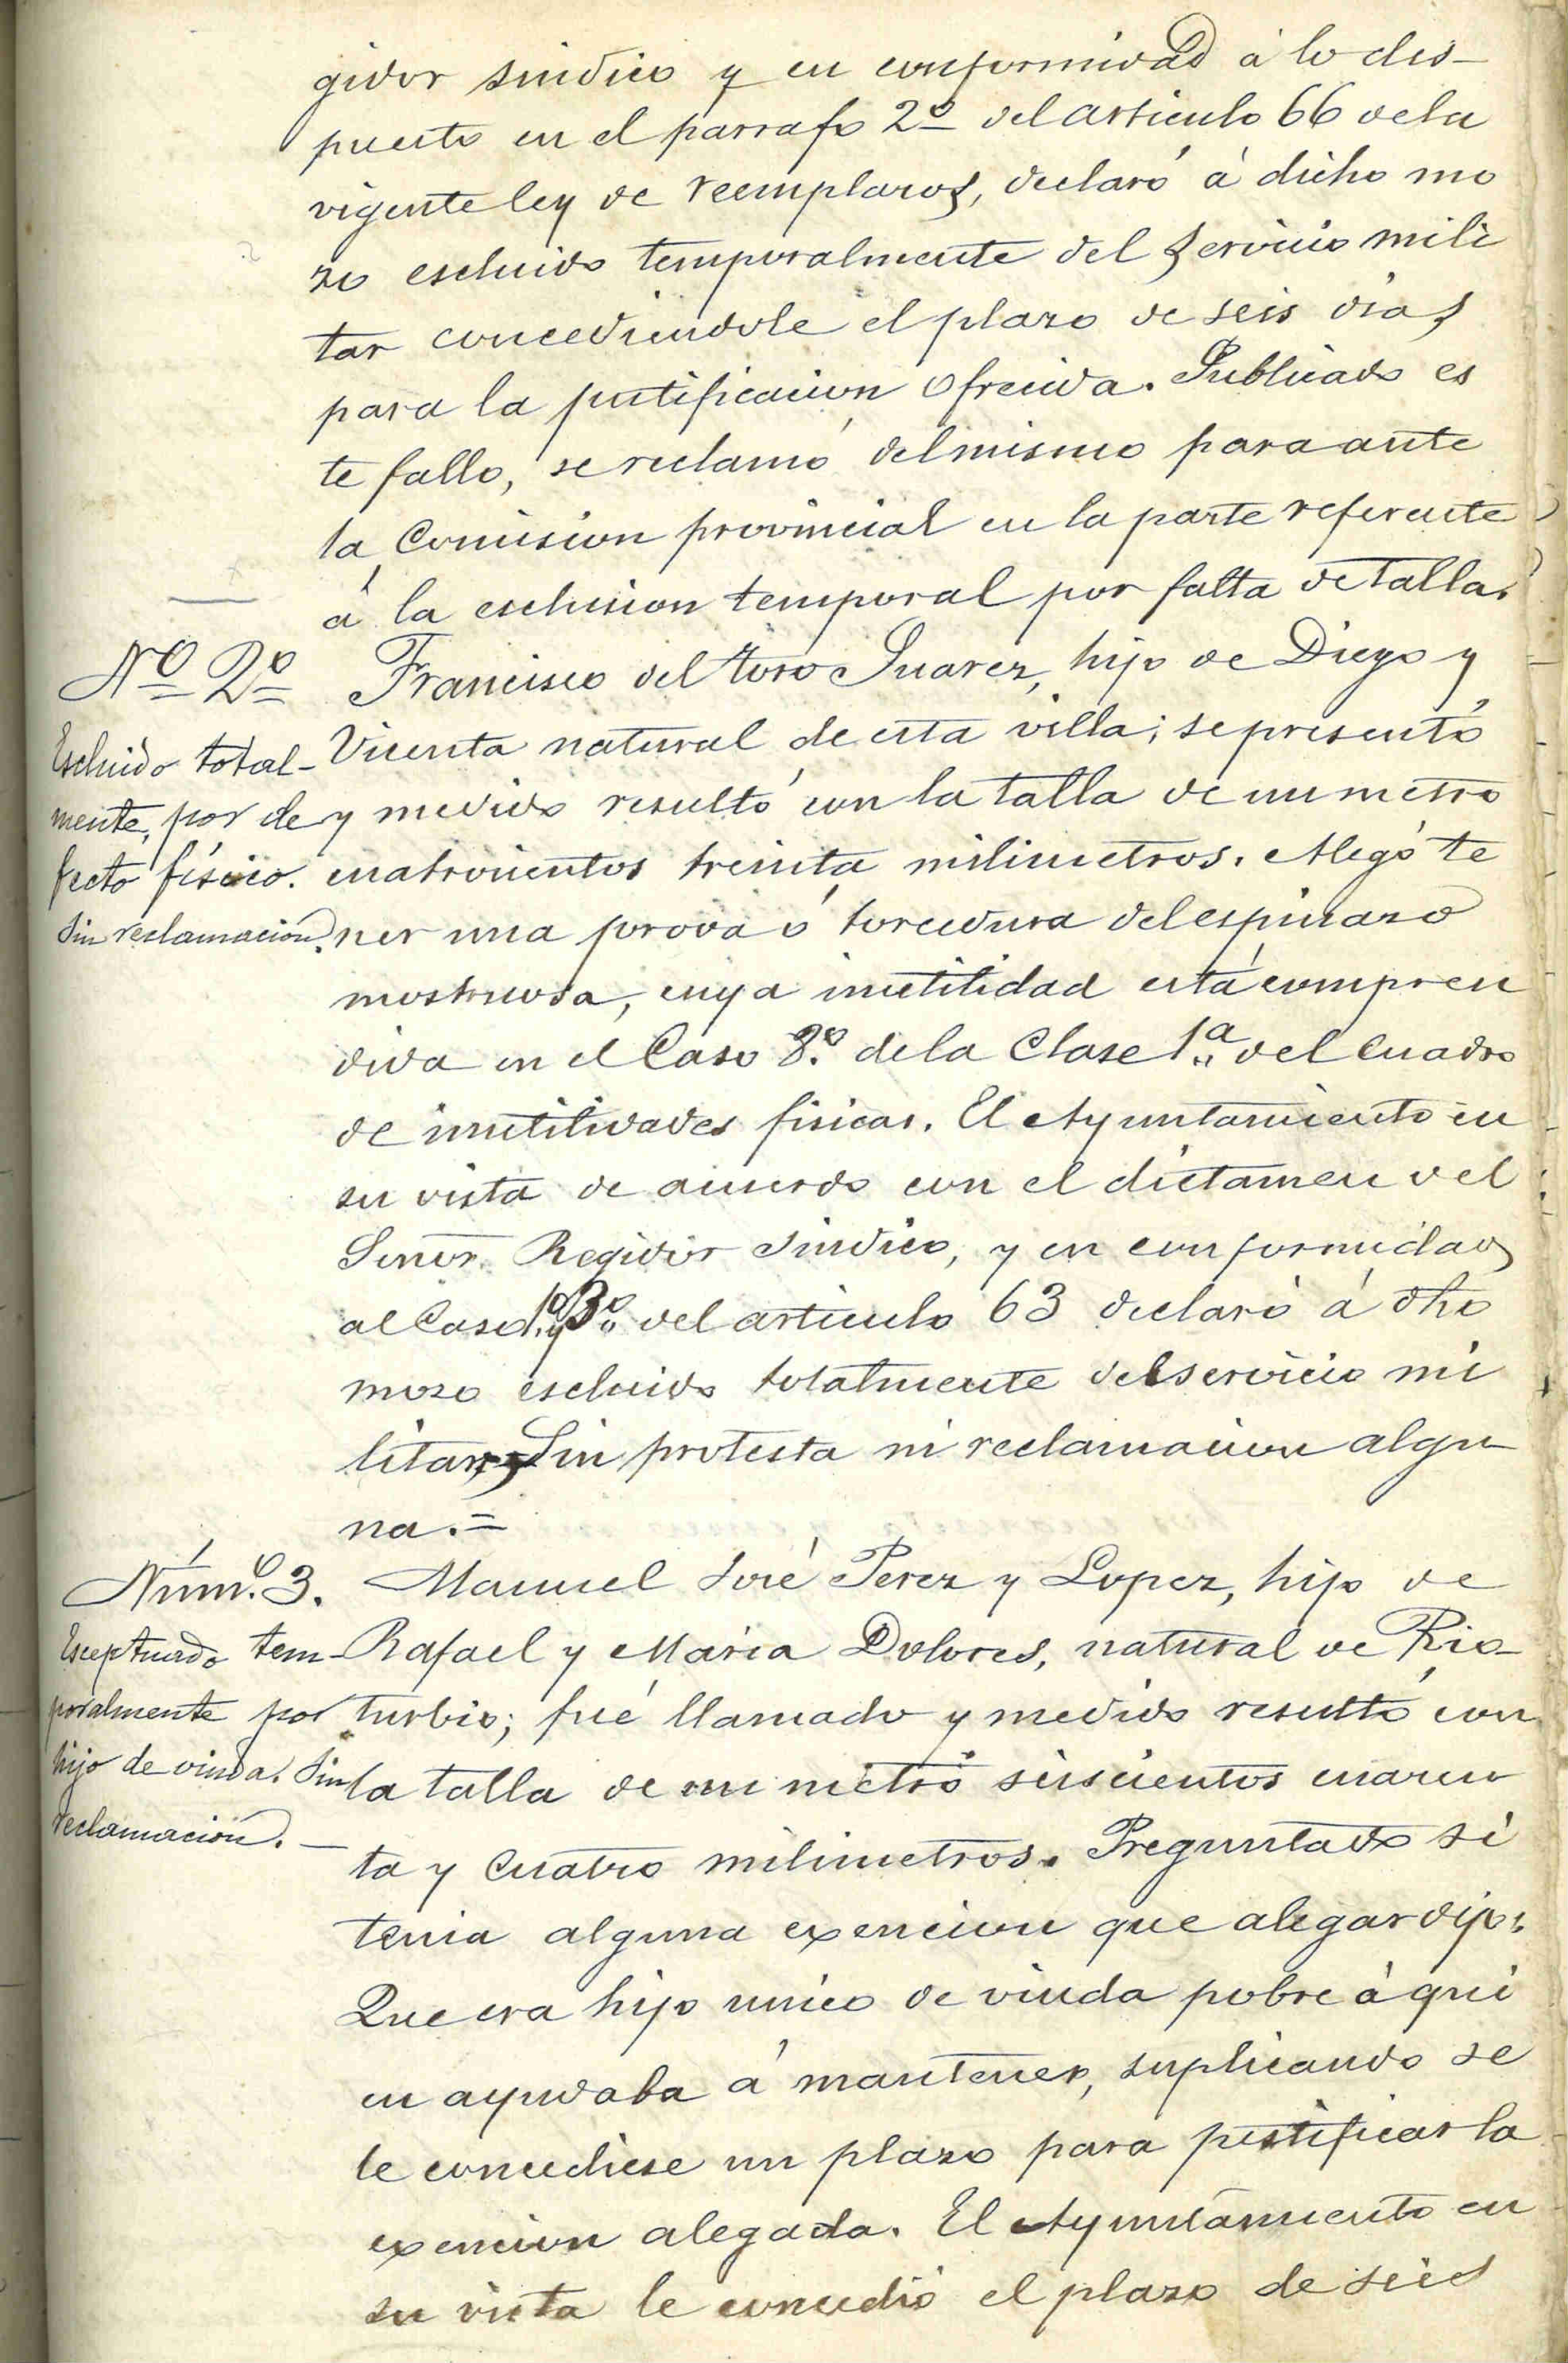 gidor sindico y en conformidad á lo dis-
puesto en el parrafo 2º del articulo 66 dela
vigente ley de reemplazos, declaró á dicho mo
zo escluido temporalmente del servicio mili
tar concediendole el plazo de seis dias
para la justificacion ofrecida. Publicado es
te fallo, se reclamó del mismo para ante
la Comision provincial en la parte referente
á la esclusion temporal por falta de talla.
Nº 2º
Escluido total-
mente, por de
fecto físico.
Sin reclamación.
Francisco del Toro Suarez, hijo de Diego y
Vicenta natural de esta villa; se presentó
y medido resultó con la talla de un metro
cuatrocientos treinta milimetros. Alegó te
ner una jorova ó torcedura del espinazo
mostruosa, cuya inutilidad está compren
dida en el Caso 8º de la Clase 1ª del Cuadro
de inutilidades fisicas. El Ayuntamiento en
su vista de acuerdo con el dictamen del
Señor Regidor Sindico, y en conformidad
al Caso 1º y 3º del articulo 63 declaró á dho
mozo escluido totalmente del servicio mi
litar, Sin protesta ni reclamacion algu
na.=
Núm.º 3.
Esceptuado tem-
poralmente por
hijo de viuda. Sin
reclamación. —
Manuel José Perez y Lopez, hijo de
Rafael y Maria Dolores, natural de Rio-
turbio; fué llamado y medido resultó con
la talla de un metro seiscientos cuaren
ta y cuatro milimetros. Preguntado si
tenia alguna exencion que alegar dijo:
Que era hijo unico de viuda pobre á qui
en ayudaba á mantener, suplicando se
le concediese un plazo para justificar la
exencion alegada. El Ayuntamiento en
su vista le concedió el plazo de seis